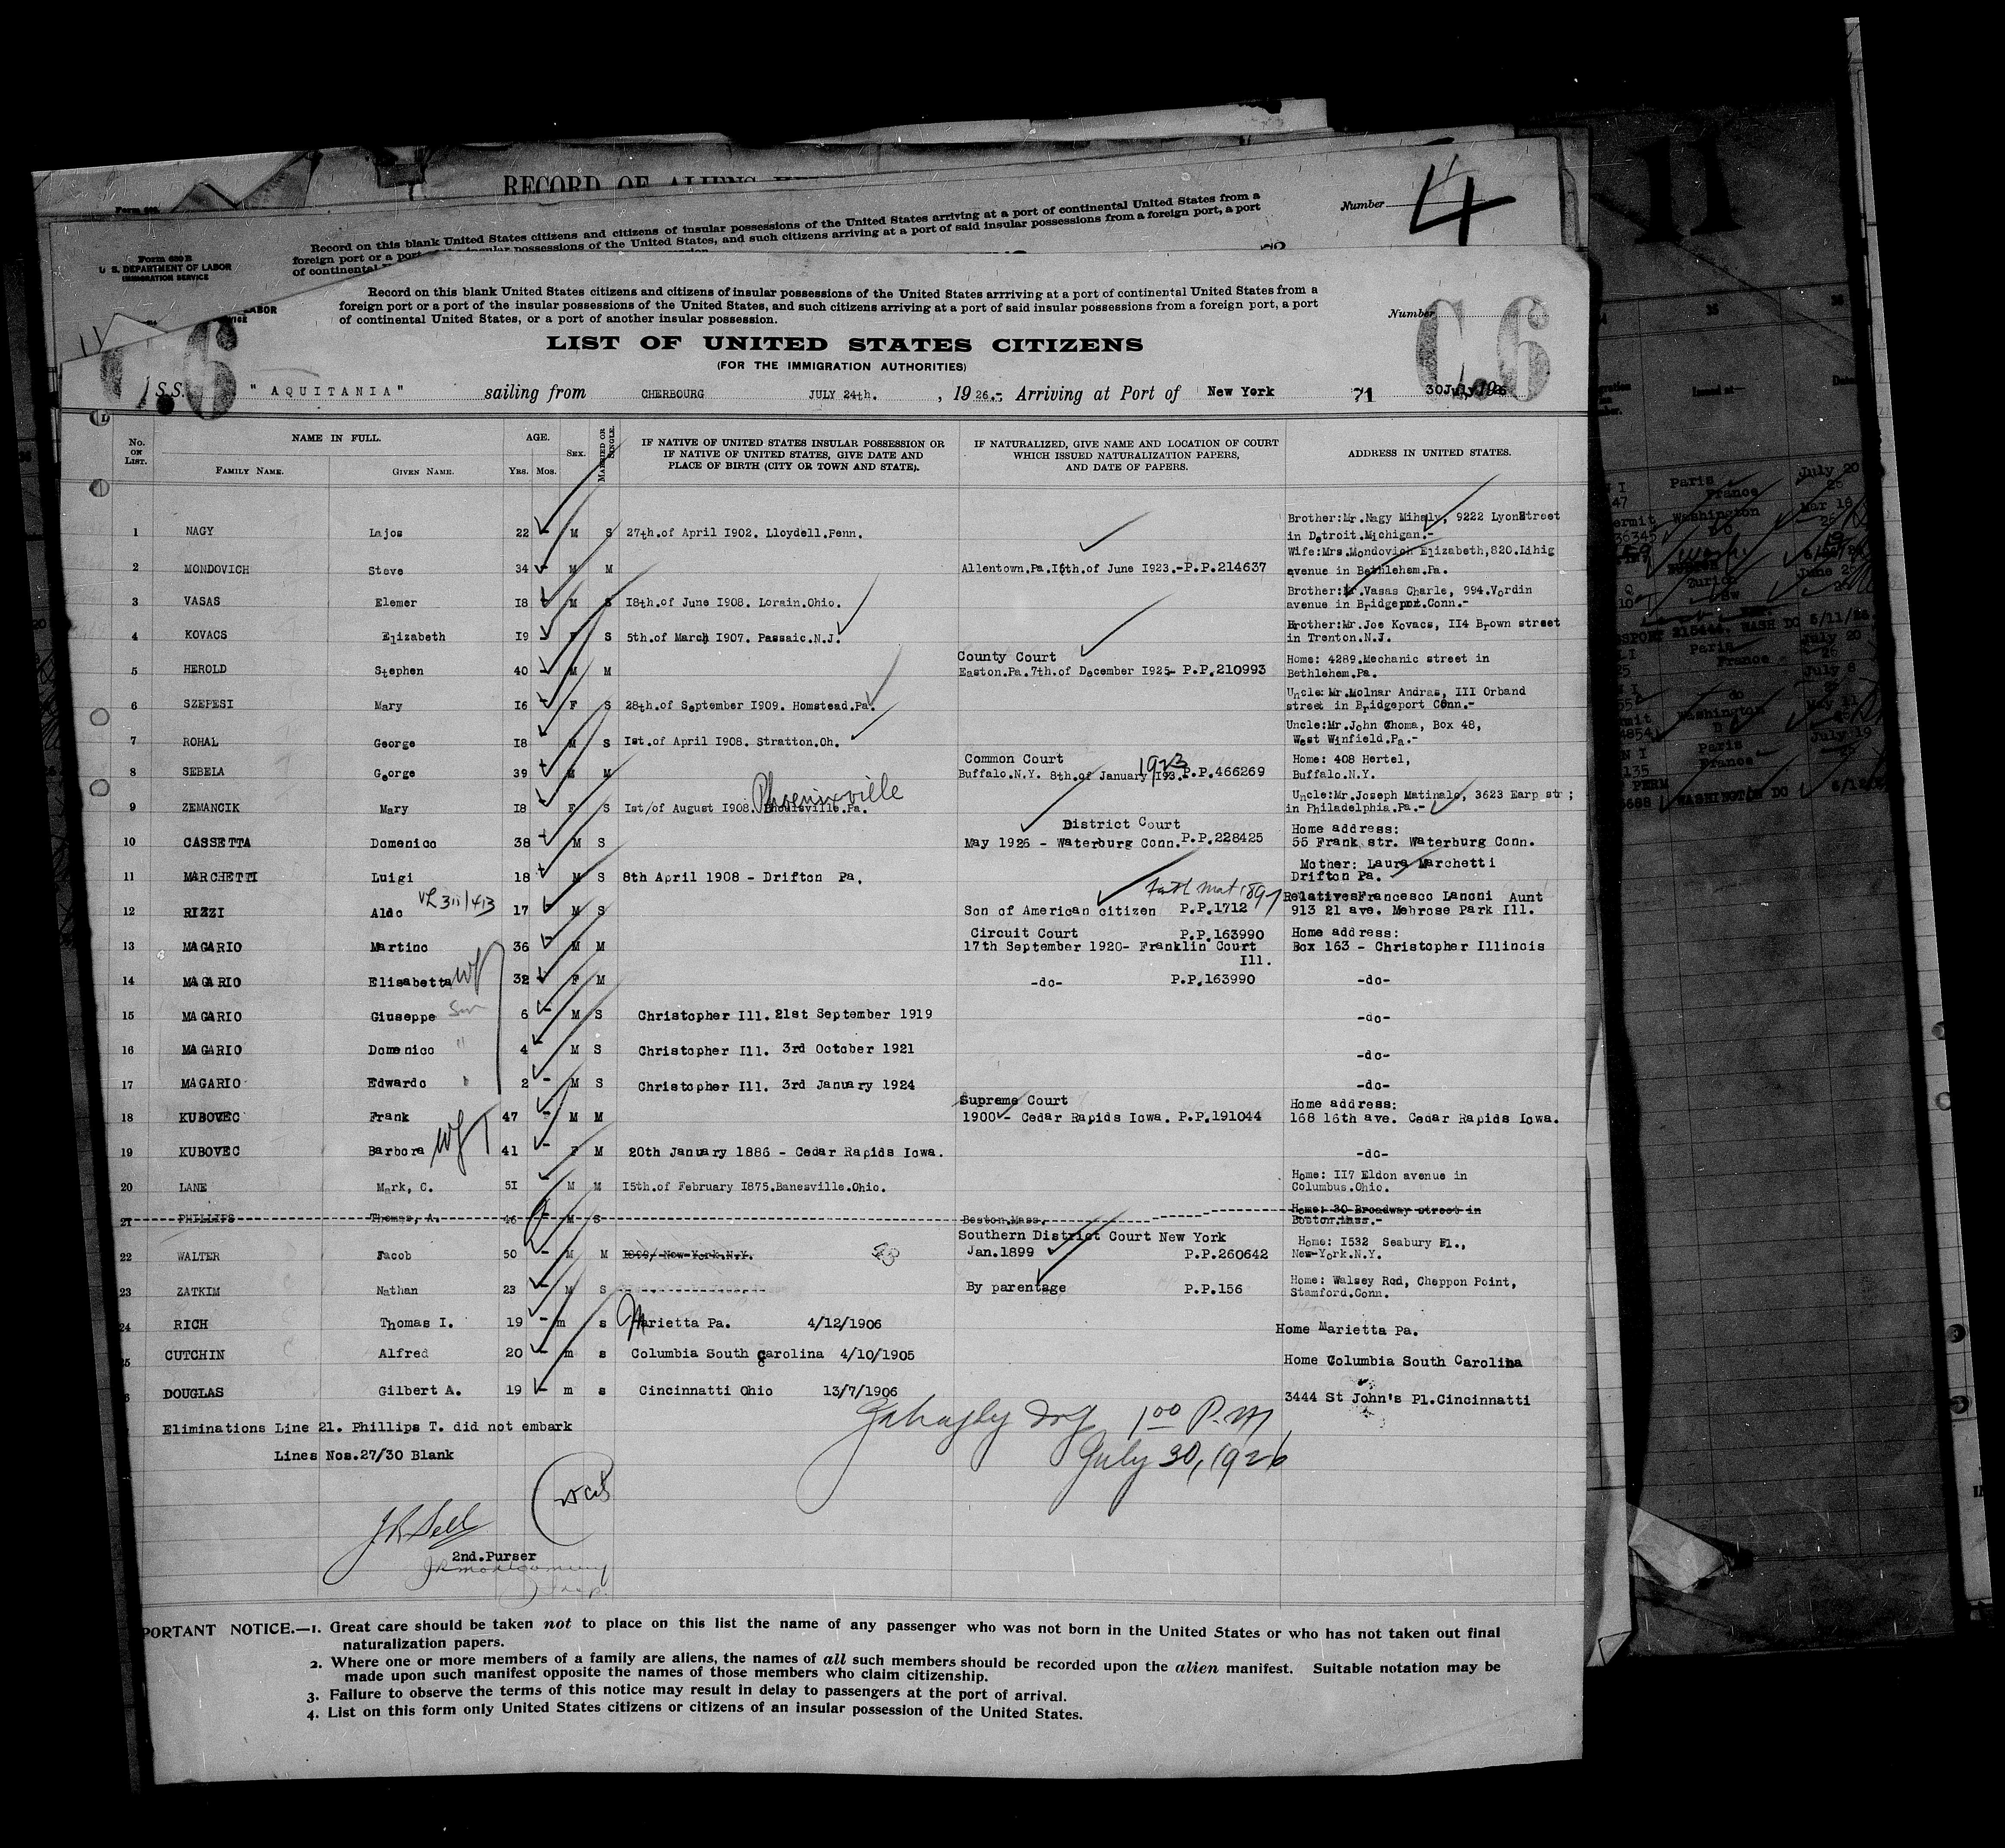 RECORD OF ALIENS
Form 630 B
U. S. DEPARTMENT OF LABOR
IMMIGRATION SERVICE
Record on this blank United States citizens and citizens of insular possessions of the United States arriving at a port of continental United States from a
foreign port or a port insular possessions of the United States, and such citizens arriving at a port of said insular possessions from a foreign port, a port
of continental
Number 4
11
LABOR
Record on this blank United States citizens and citizens of insular possessions of the United States arrriving at a port of continental United States from a
foreign port or a port of the insular possessions of the United States, and such citizens arriving at a port of said insular possessions from a foreign port, a port
of continental United States, or a port of another insular possession.
Number C.6
LIST OF UNITED STATES CITIZENS
(FOR THE IMMIGRATION AUTHORITIES)
S.S. "AQUITANIA" sailing from CHERBOURG JULY 24th. , 1926.-; Arriving at Port of New York 71 30 July 1926
No. ON LIST. NAME IN FULL. FAMILY NAME. GIVEN NAME. AGE. Yrs. Mos. SEX. MARRIED OR SINGLE. IF NATIVE OF UNITED STATES INSULAR POSSESSION OR IF NATIVE OF UNITED STATES, GIVE DATE AND PLACE OF BIRTH (CITY OR TOWN AND STATE). IF NATURALIZED, GIVE NAME AND LOCATION OF COURT WHICH ISSUED NATURALIZATION PAPERS, AND DATE OF PAPERS. ADDRESS IN UNITED STATES.
Brother:Mr.Nagy Mihaly, 9222 Lyon Street
1 NAGY Lajos 22 - M S 27th.of April I902. Lloydell.Penn. in Detroit.Michigan.-
Wife:Mrs.Mondovich Elizabeth,820.Lihig
2 MONDOVICH Steve 34 - M M Allentown.Pa.I6th.of June I923.-P.P.214637 avenue in Bethlehem.Pa.
Brother:Mr.Vasas Charle, 994.Vordin
3 VASAS Elemer I8 - M S I8th.of June I908. Lorain.Ohio. avenue in Bridgeport.Conn.-
Brother:Mr.Joe Kovacs, II4 Brown street
4 KOVACS Elizabeth I9 - F S 5th.of March I907. Passaic.N.J. in Trenton.N.J.
County Court Home: 4289.Mechanic street in
5 HEROLD Stephen 40 - M M Easton.Pa.7th.of December I925- P.P.210993 Bethlehem.Pa.
Uncle:Mr.Molnar Andras, III Orband
6 SZEPESI Mary I6 - F S 28th.of September I909. Homstead.Pa. street in Bridgeport Conn.-
Uncle:Mr.John Thoma, Box 48,
7 ROHAL George I8 - M S Ist.of April I908. Stratton.Oh. West Winfield.Pa.-
Common Court 1923 Home: 408 Hertel,
8 SEBELA George 39 - M M Buffalo.N.Y. 8th.of January I93.P.P.466269 Buffalo.N.Y.
Phoenixville Uncle:Mr.Joseph Matinale, 3623 Earp str;
9 ZEMANCIK Mary I8 - F S Ist/of August I908. in Philadelphia.Pa.-
District Court Home address:
10 CASSETTA Domenico 38 - M S May 1926 - Waterburg Conn. P.P.228425 55 Frank str. Waterburg Conn.
Mother: Laura Marchetti
11 MARCHETTI Luigi 18 - M S 8th April 1908 - Drifton Pa. Drifton Pa.
VL 311/413 Fath nat 1897 Relatives Francesco Lanoni Aunt
12 RIZZI Aldo 17 - M S Son of American citizen P.P.1712 913 21 ave. Mebrose Park Ill.
Circuit Court P.P.163990 Home address:
13 MAGARIO Martino 36 - M M 17th September 1920- Franklin Court Box 163 - Christopher Illinois
Ill.
14 MAGARIO Elisabetta wf 32 - F M -do- P.P.163990 -do-
15 MAGARIO Giuseppe Son 6 - M S Christopher Ill. 21st September 1919 -do-
16 MAGARIO Domenico " 4 - M S Christopher Ill. 3rd October 1921 -do-
17 MAGARIO Edwardo " 2 - M S Christopher Ill. 3rd January 1924 -do-
Supreme Court Home address:
18 KUBOVEC Frank 47 - M M 1900 - Cedar Rapids Iowa. P.P.191044 168 16th ave. Cedar Rapids Iowa.
19 KUBOVEC Barbora wf 41 - F M 20th January 1886 - Cedar Rapids Iowa. -do-
Home: II7 Eldon avenue in
20 LANE Mark, C. 5I M M I5th.of February I875.Banesville.Ohio. Columbus.Ohio.
Home: 30 Broadway street in
21 PHILLIPS Thomas, A. 46 - M S Boston.Mass. Boston.Mass.-
Southern District Court New York Home: I532 Seabury Pl.,
22 WALTER Jacob 50 - M M I899/ New-York.N.Y. Jan.1899 P.P.260642 New-York.N.Y.
Home: Walsey Rod, Cheppon Point,
23 ZATKIM Nathan 23 - M S By parentage P.P.156 Stamford.Conn.
24 RICH Thomas I. 19 - m s Marietta Pa. 4/12/1906 Home Marietta Pa.
25 CUTCHIN Alfred 20 - m s Columbia South Carolina 4/10/1905 Home Columbia South Carolina
6 DOUGLAS Gilbert A. 19 - m s Cincinnatti Ohio 13/7/1906 3444 St John's Pl.Cincinnatti
Eliminations Line 21. Phillips T. did not embark
1 00 P.M
Lines Nos.27/30 Blank
July 30, 1926
J R Sell
2nd.Purser
JR Montgomery
Insp.
PORTANT NOTICE.—1. Great care should be taken not to place on this list the name of any passenger who was not born in the United States or who has not taken out final
naturalization papers.
2. Where one or more members of a family are aliens, the names of all such members should be recorded upon the alien manifest. Suitable notation may be
made upon such manifest opposite the names of those members who claim citizenship.
3. Failure to observe the terms of this notice may result in delay to passengers at the port of arrival.
4. List on this form only United States citizens or citizens of an insular possession of the United States.